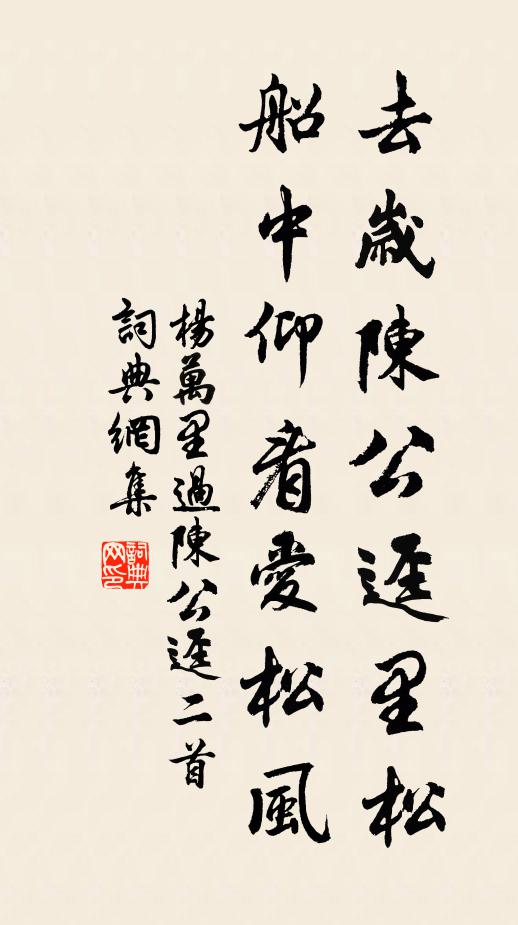 去歲陳公逕里松
船中仰看愛松風
楊萬里過陳公逕二首
詞典網集
詞典网印